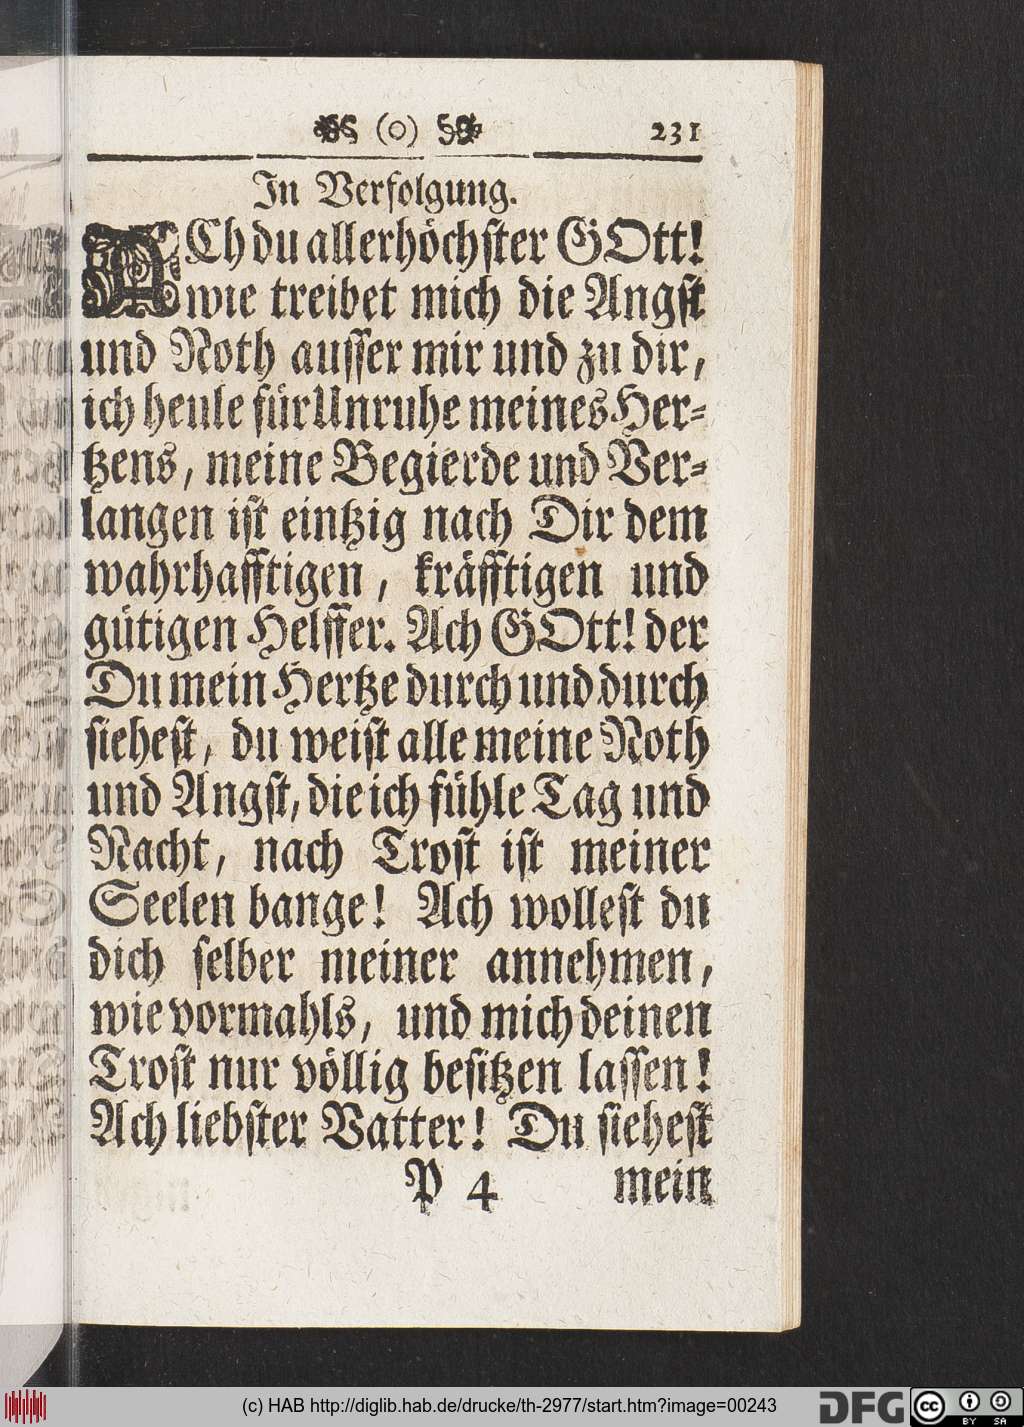 (o) 231
In Verfolgung.
ACh du allerhöchster GOtt!
wie treibet mich die Angst
und Noth ausser mir und zu dir,
ich heule für Unruhe meines Her-
tzens, meine Begierde und Ver-
langen ist eintzig nach Dir dem
wahrhafftigen, kräfftigen und
gütigen Helffer. Ach GOtt! der
Du mein Hertze durch und durch
siehest, du weist alle meine Noth
und Angst, die ich fühle Tag und
Nacht, nach Trost ist meiner
Seelen bange! Ach wollest du
dich selber meiner annehmen,
wie vormahls, und mich deinen
Trost nur völlig besitzen lassen!
Ach liebster Vatter! Du siehest
P 4 mein
(c) HAB http://diglib.hab.de/drucke/th-2977/start.htm?image=00243
DFG
cc BY SA